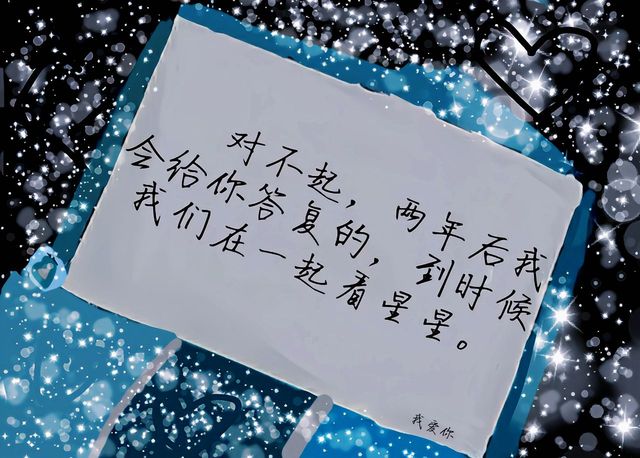 对不起，两年后我
会给你答复的，到时候
我们在一起看星星。
我爱你